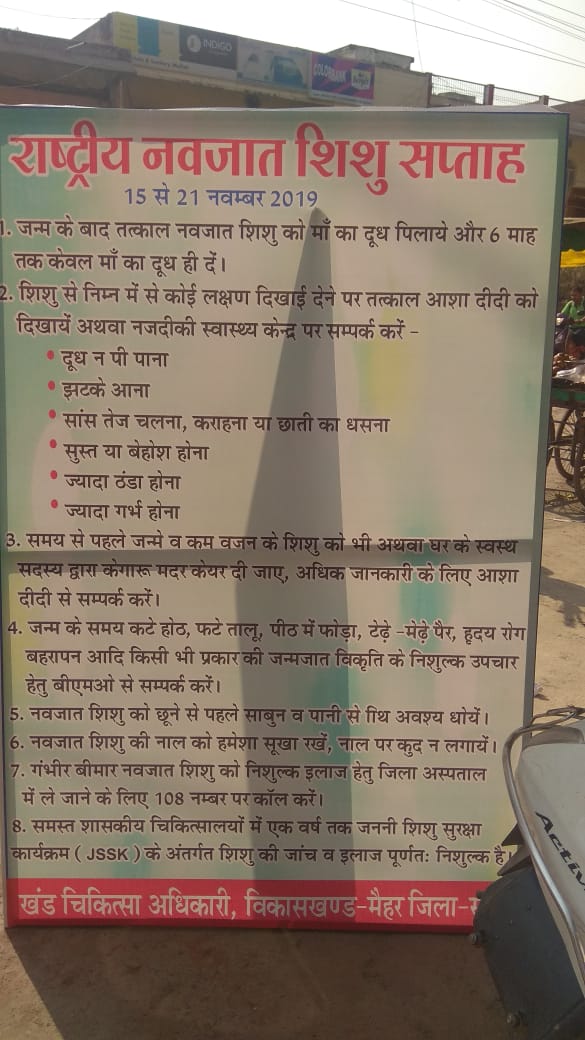 INDIGO
COLORBANK
राष्ट्रीय नवजात शिशु सप्ताह
15 से 21 नवम्बर 2019
1. जन्म के बाद तत्काल नवजात शिशु को माँ का दूध पिलाये और 6 माह
तक केवल माँ का दूध ही दें।
2. शिशु से निम्न में से कोई लक्षण दिखाई देने पर तत्काल आशा दीदी को
दिखायें अथवा नजदीकी स्वास्थ्य केन्द्र पर सम्पर्क करें -
• दूध न पी पाना
• झटके आना
• सांस तेज चलना, कराहना या छाती का धसना
• सुस्त या बेहोश होना
• ज्यादा ठंडा होना
• ज्यादा गर्भ होना
3. समय से पहले जन्मे व कम वजन के शिशु को भी अथवा घर के स्वस्थ
सदस्य द्वारा केगारू मदर केयर दी जाए, अधिक जानकारी के लिए आशा
दीदी से सम्पर्क करें।
4. जन्म के समय कटे होठ, फटे तालू, पीठ में फोड़ा, टेढ़े -मेढ़े पैर, हृदय रोग
बहरापन आदि किसी भी प्रकार की जन्मजात विकृति के निशुल्क उपचार
हेतु बीएमओ से सम्पर्क करें।
5. नवजात शिशु को छूने से पहले साबुन व पानी से अवश्य धोयें।
6. नवजात शिशु की नाल को हमेशा सूखा रखें, नाल पर कुद न लगायें।
7. गंभीर बीमार नवजात शिशु को निशुल्क इलाज हेतु जिला अस्पताल
में ले जाने के लिए 108 नम्बर पर कॉल करें।
8. समस्त शासकीय चिकित्सालयों में एक वर्ष तक जननी शिशु सुरक्षा
कार्यक्रम ( JSSK ) के अंतर्गत शिशु की जांच व इलाज पूर्णतः निशुल्क है।
खंड चिकित्सा अधिकारी, विकासखण्ड-मैहर जिला-
Activ